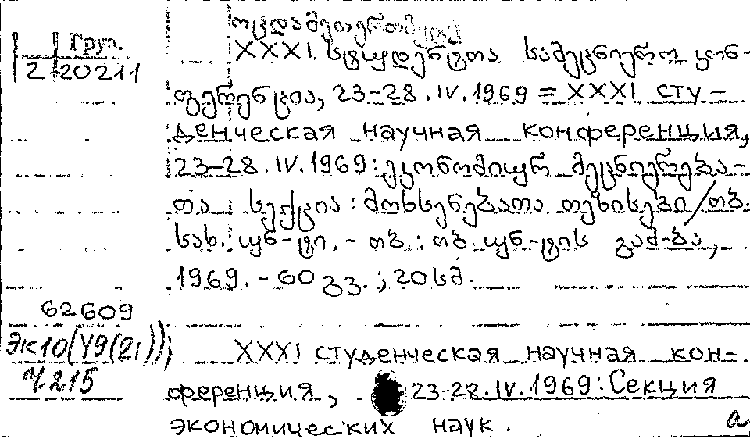 ოცდამეთერთმეტე
Груз. XXXI სტუდენტთა სამეცნიერო კონ-
2 20211
ფერენცია, 23-28.IV.1969 = XXXI сту-
денческая научная конференция,
23-28.IV.1969: ეკონომიკურ მეცნიერება-
თა სექცია: მოხსენებათა თეზისები / თბ.
სახ. უნ-ტი. - თბ.: თბ. უნ-ტის გამ-ბა,
1969. - 60 გვ.; 20 სმ.
62609
Эк10(Y9(21)) XXXI студенческая научная кон-
4215
ференция, 23-28.IV.1969: Секция
экономических наук. a